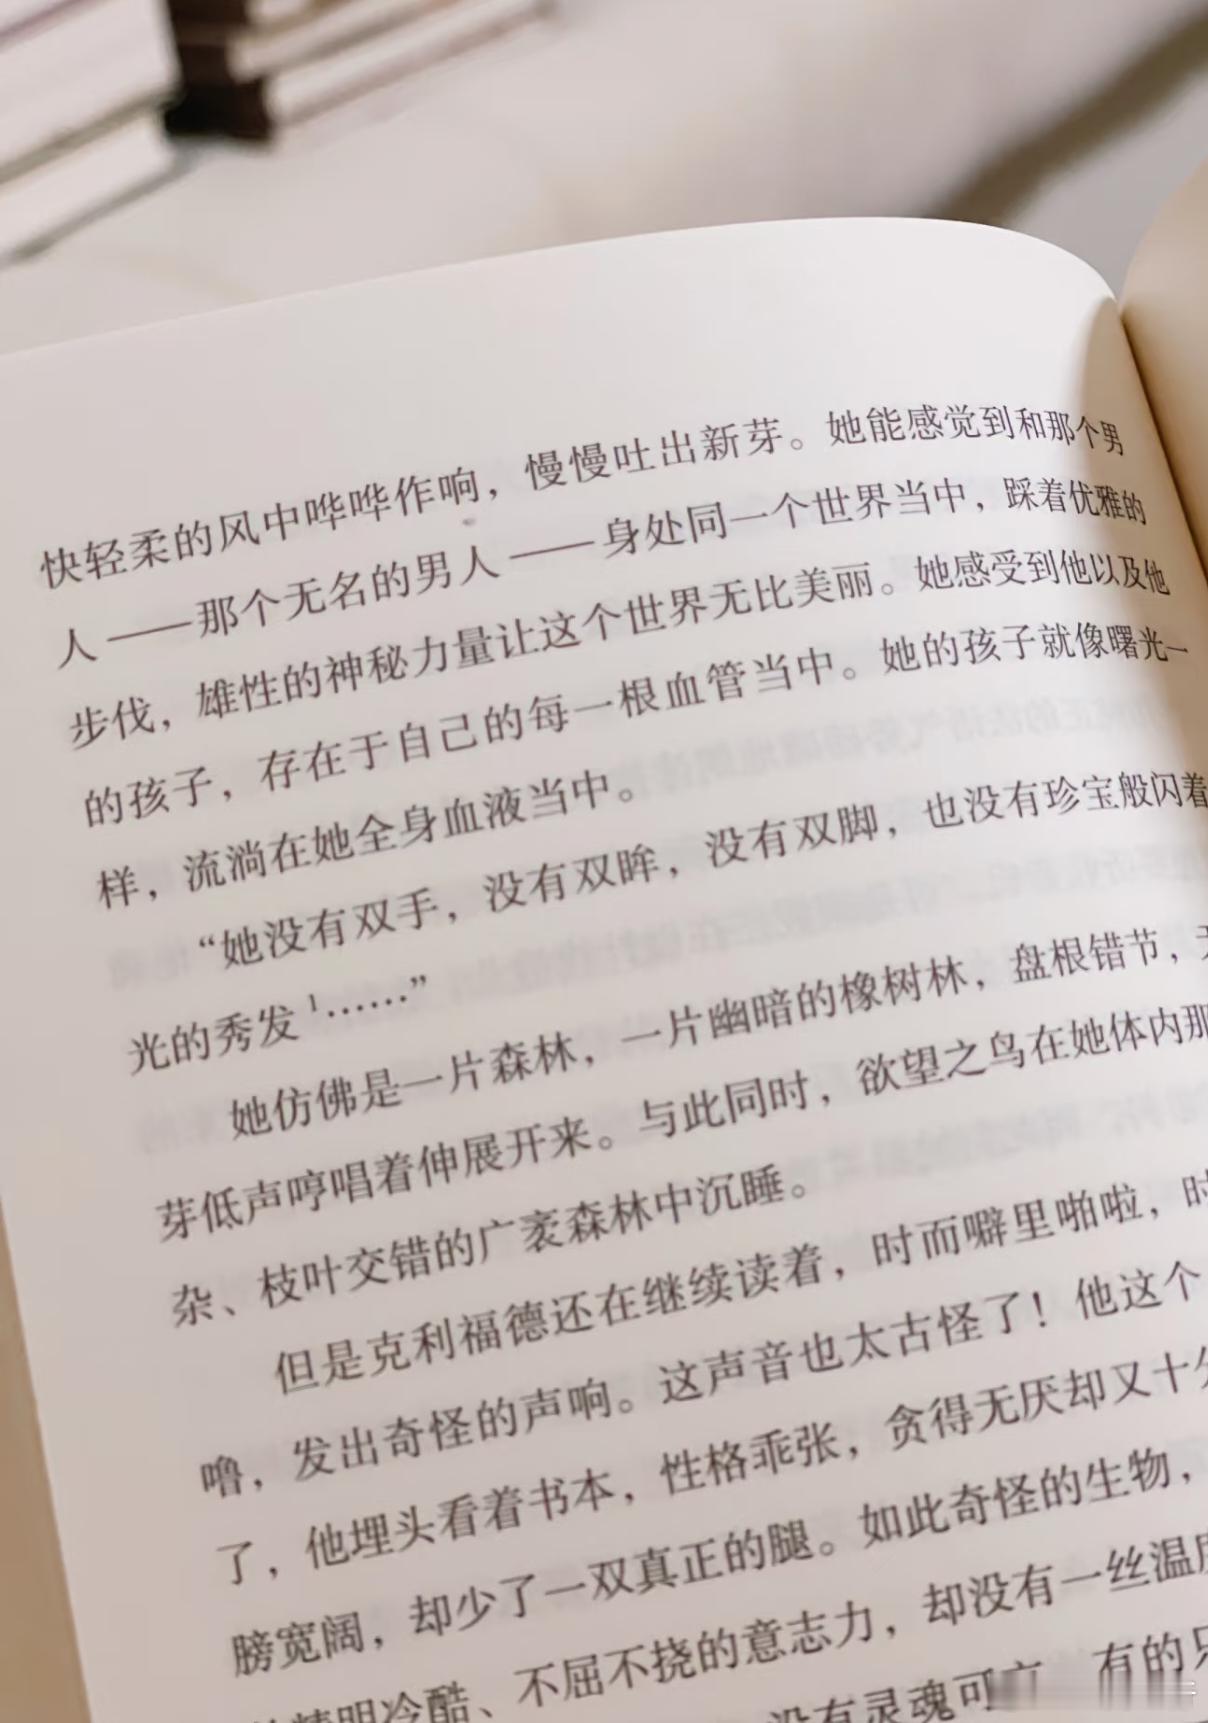 快轻柔的风中哗哗作响，慢慢吐出新芽。她能感觉到和那个男
人——那个无名的男人——身处同一个世界当中，踩着优雅的
步伐，雄性的神秘力量让这个世界无比美丽。她感受到他以及他
的孩子，存在于自己的每一根血管当中。她的孩子就像曙光一
样，流淌在她全身血液当中。
“她没有双手，没有双眸，没有双脚，也没有珍宝般闪着
光的秀发1……”
她仿佛是一片森林，一片幽暗的橡树林，盘根错节，
芽低声哼唱着伸展开来。与此同时，欲望之鸟在她体内那
杂、枝叶交错的广袤森林中沉睡。
但是克利福德还在继续读着，时而噼里啪啦，时
噜，发出奇怪的声响。这声音也太古怪了！他这个
了，他埋头看着书本，性格乖张，贪得无厌却又十分
膀宽阔，却少了一双真正的腿。如此奇怪的生物，
精明冷酷、不屈不挠的意志力，却没有一丝温度
没有灵魂可 有的只